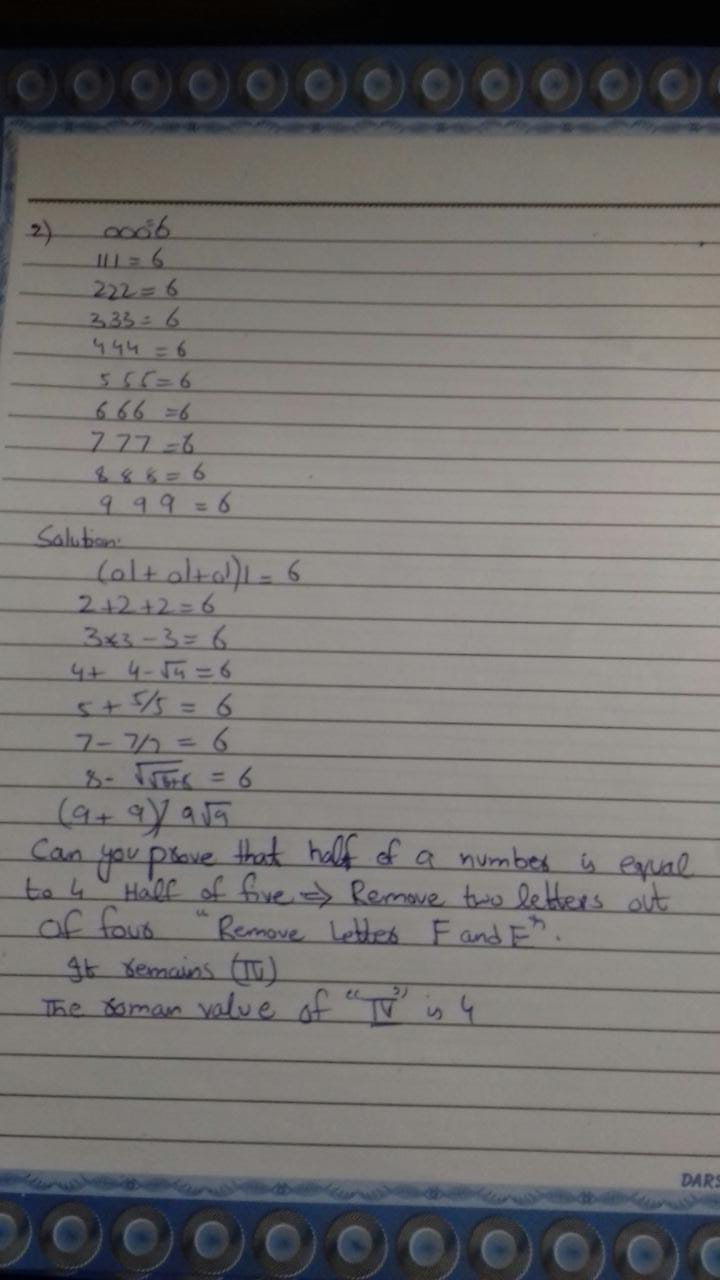 2) 000=6
111 = 6
222 = 6
333 = 6
444 = 6
555=6
666 =6
777 =6
888= 6
9 9 9 = 6
Solution:
(0!+ 0!+0!)! = 6
2+2+2=6
3×3-3= 6
4+ 4-√4 = 6
5+ 5/5 = 6
7- 7/7 = 6
8- = 6
(9+ 9)/ 9√9
Can you prove that half of a number is equal
to 4 Half of five ⇒ Remove two letters out
of four "Remove Letter F and E".
It remains (IV)
The roman value of "IV" is 4
DARS